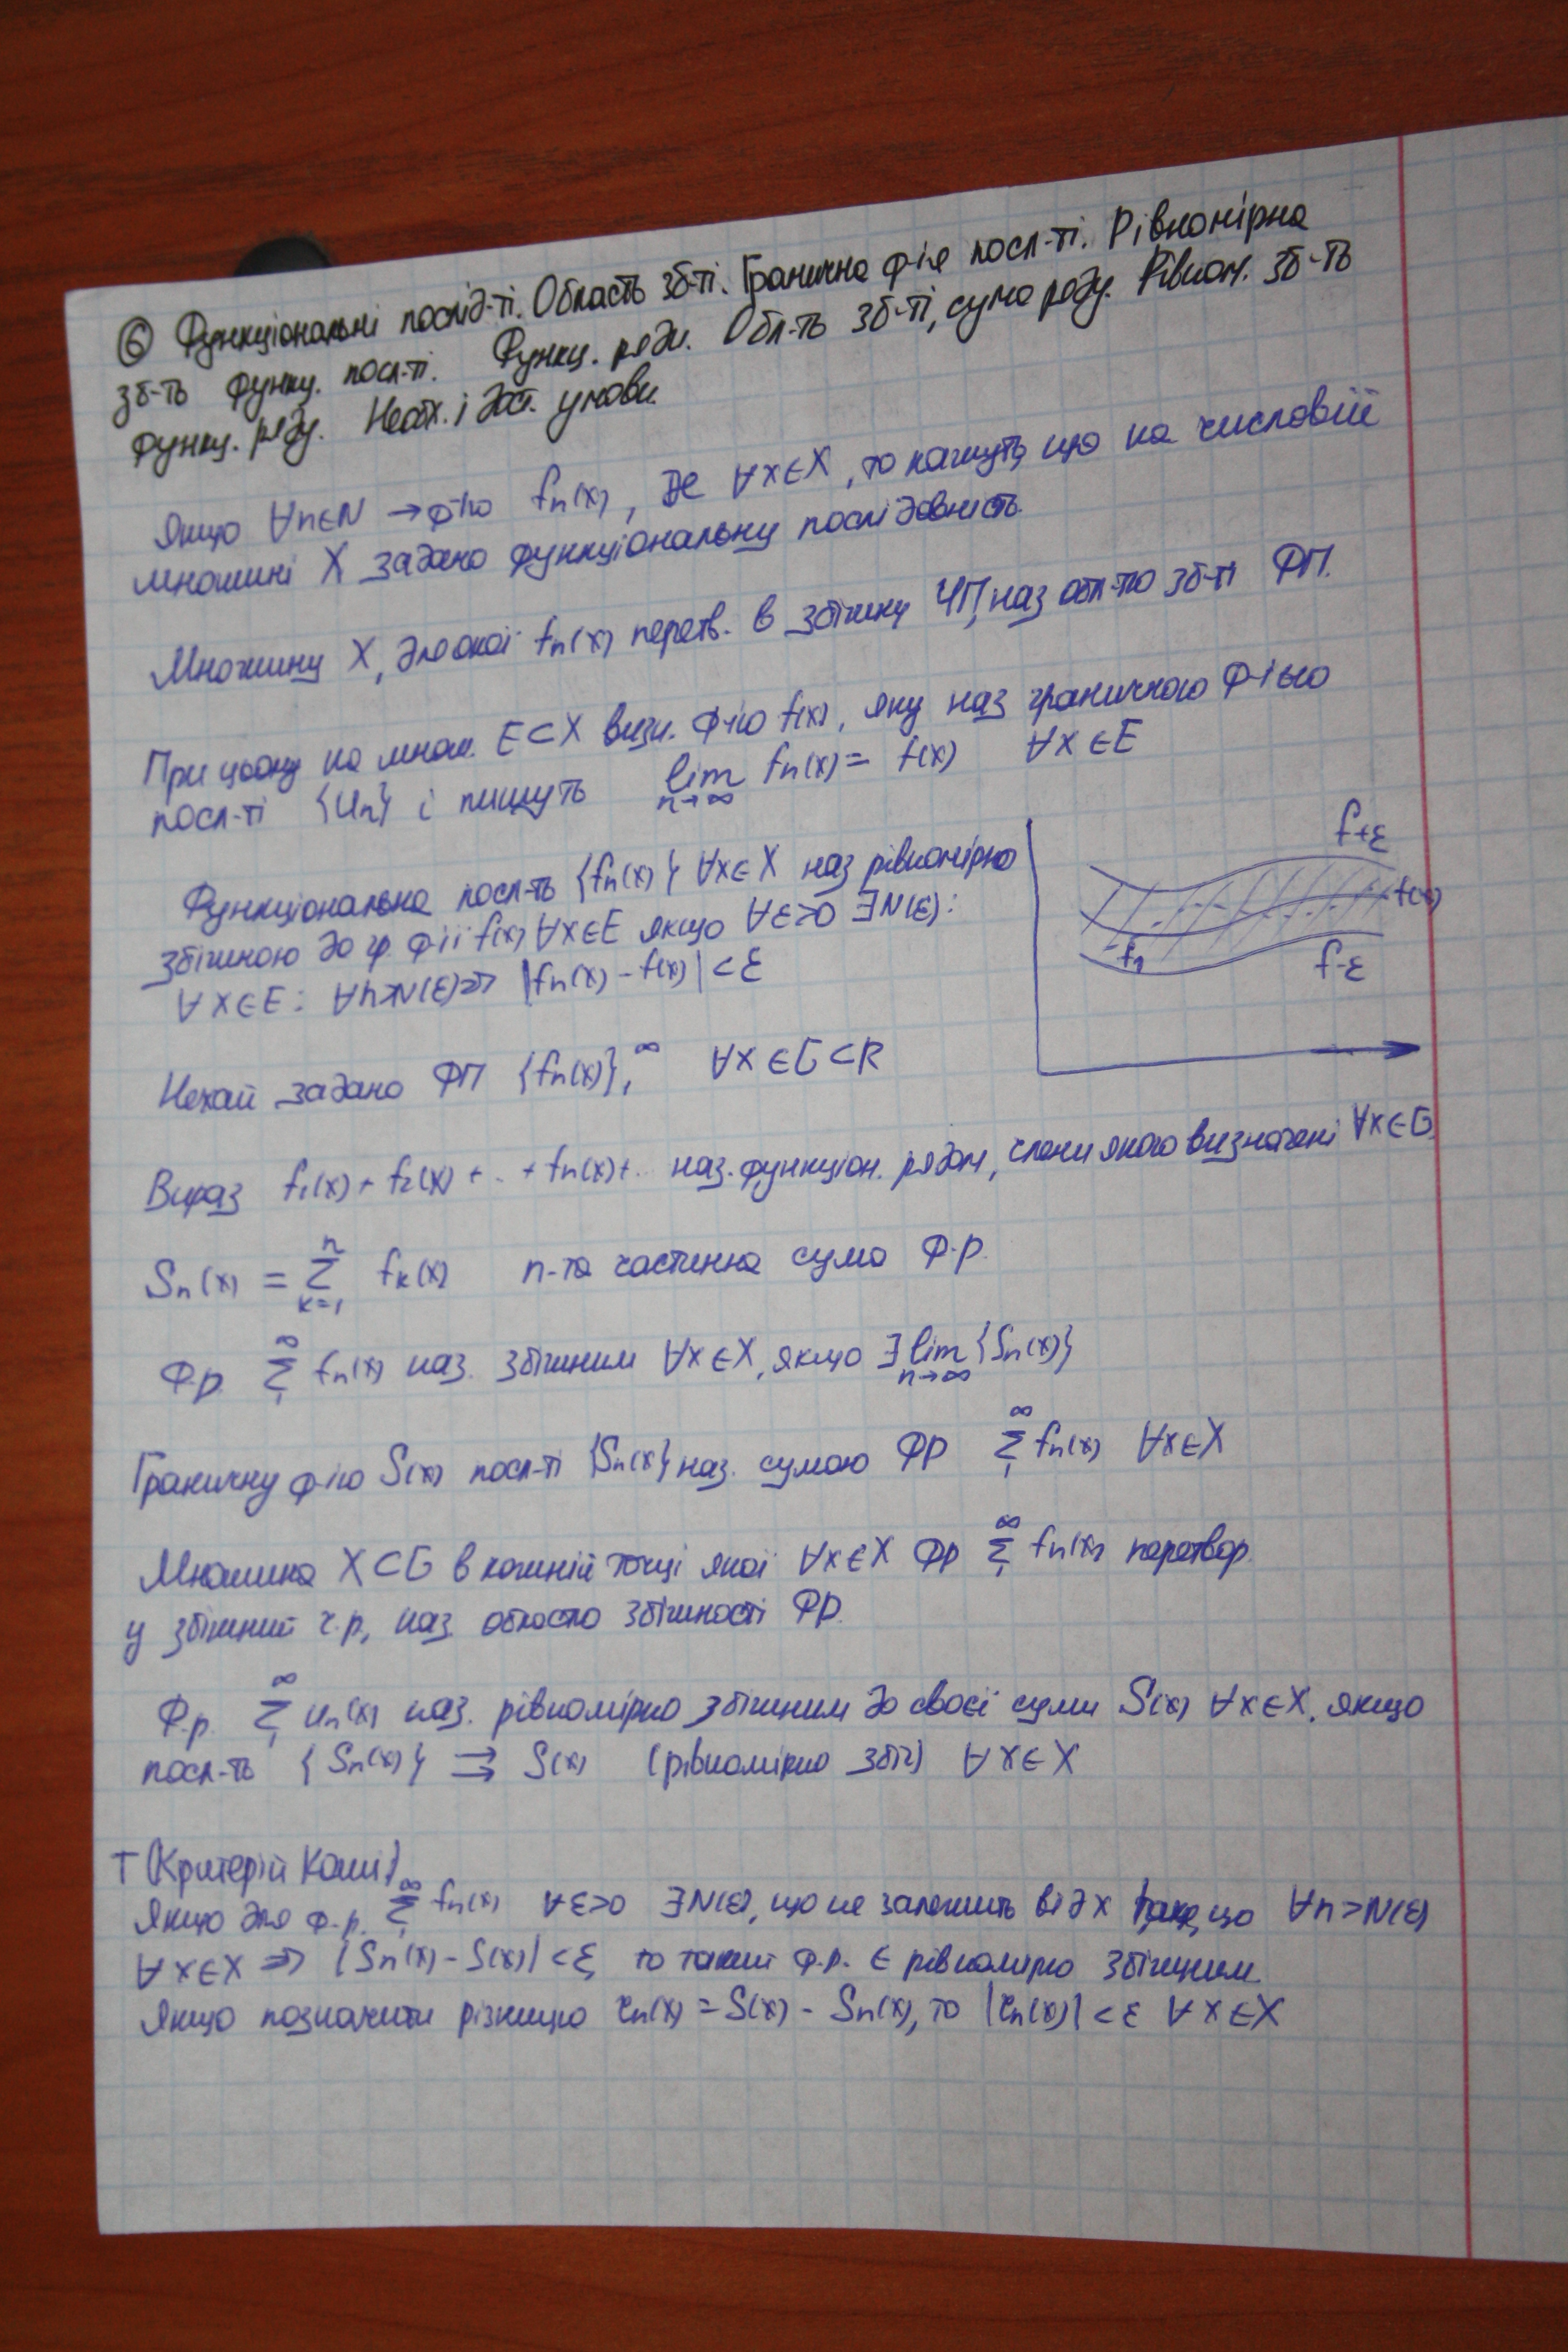 ⑥ Функціональні послід-ті. Область зб-ті. Гранична ф-ія посл-ті. Рівномірна
зб-ть функц. посл-ті. Функц. ряди. Обл-ть зб-ті, сума ряду. Рівном. зб-ть
функц. ряду. Необх. і дост. умови.
Якщо ∀n∈N → ф-ію fn(x), де ∀x∈X, то кажуть, що на числовій
множині X задано функціональну послідовність.
Множину X, для якої fn(x) перетв. в збіжну ЧП, наз обл-тю зб-ті ФП.
При цьому на множ. E⊂X визн. ф-ію f(x), яку наз граничною ф-ією
посл-ті {Un} і пишуть lim n→∞ fn(x) = f(x) ∀x∈E
Функціональна посл-ть {fn(x)} ∀x∈X наз рівномірно
збіжною до гр. ф-ії f(x) ∀x∈E якщо ∀ε>0 ∃N(ε):
∀x∈E: ∀n>N(ε) ⇒ |fn(x) - f(x)| < ε
f+ε
f(x)
fn
f-ε
Нехай задано ФП {fn(x)}₁^∞ ∀x∈G⊂R
Вираз f₁(x) + f₂(x) + .. + fn(x) + .. наз. функціон. рядом, члени якого визначені ∀x∈G.
Sn(x) = ∑ k=1 n fk(x) n-та частинна сума Ф.р.
Ф.р. ∑₁^∞ fn(x) наз. збіжним ∀x∈X, якщо ∃ lim n→∞ {Sn(x)}
Граничну ф-ію S(x) посл-ті {Sn(x)} наз. сумою ФР ∑₁^∞ fn(x) ∀x∈X
Множина X⊂G в кожній точці якої ∀x∈X Фр ∑₁^∞ fn(x) перетвор.
у збіжний ч.р, наз. областю збіжності Фр.
Ф.р. ∑₁^∞ un(x) наз. рівномірно збіжним до своєї суми S(x) ∀x∈X, якщо
посл-ть {Sn(x)} ⇉ S(x) (рівномірно збіг) ∀x∈X
Т (Критерій Коші)
Якщо для ф.р. ∑₁^∞ fn(x) ∀ε>0 ∃N(ε), що не залежить від x таке, що ∀n>N(ε)
∀x∈X ⇒ |Sn(x) - S(x)| < ε, то такий ф.р. є рівномірно збіжним.
Якщо позначити різницю rn(x) = S(x) - Sn(x), то |rn(x)| < ε ∀x∈X